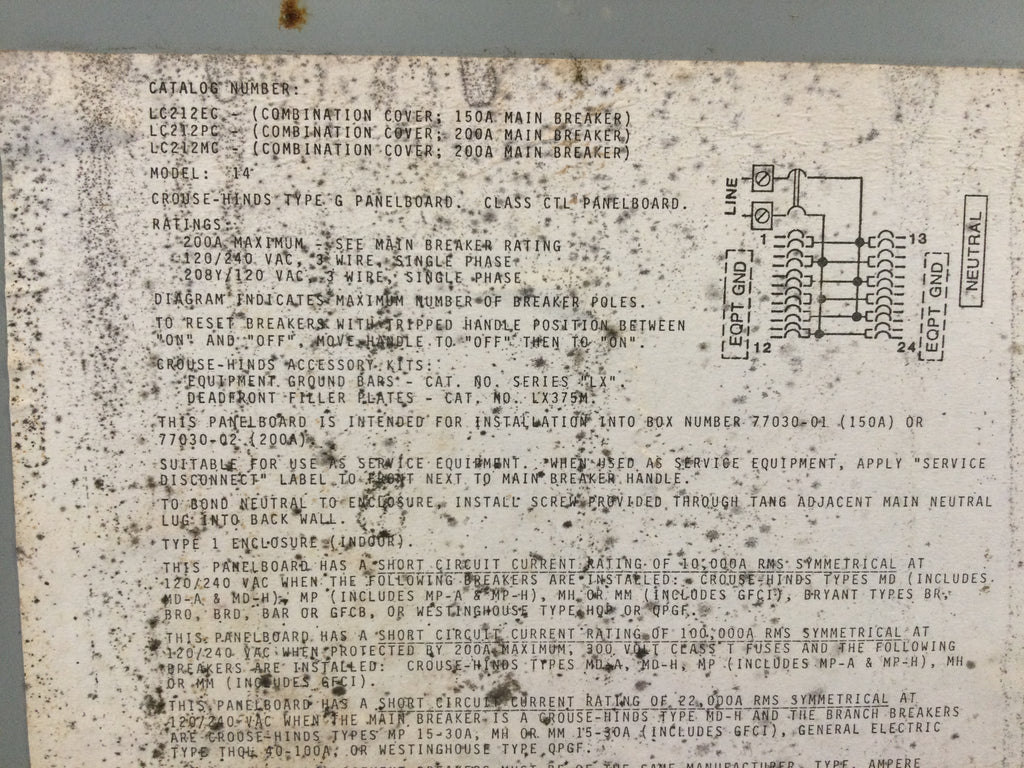 CATALOG NUMBER:
LC212EC - (COMBINATION COVER; 150A MAIN BREAKER)
LC212PC - (COMBINATION COVER; 200A MAIN BREAKER)
LC212MC - (COMBINATION COVER; 200A MAIN BREAKER)
MODEL: 14
CROUSE-HINDS TYPE G PANELBOARD. CLASS CTL PANELBOARD.
RATINGS:
200A MAXIMUM - SEE MAIN BREAKER RATING
120/240 VAC, 3 WIRE, SINGLE PHASE
208Y/120 VAC, 3 WIRE, SINGLE PHASE
DIAGRAM INDICATES MAXIMUM NUMBER OF BREAKER POLES.
TO RESET BREAKERS WITH TRIPPED HANDLE POSITION BETWEEN
"ON" AND "OFF", MOVE HANDLE TO "OFF" THEN TO "ON".
CROUSE-HINDS ACCESSORY KITS:
EQUIPMENT GROUND BARS - CAT. NO. SERIES "LX".
DEADFRONT FILLER PLATES - CAT. NO. LX375M.
LINE
1
13
12
24
EQPT GND
EQPT GND
NEUTRAL
THIS PANELBOARD IS INTENDED FOR INSTALLATION INTO BOX NUMBER 77030-01 (150A) OR
77030-02 (200A).
SUITABLE FOR USE AS SERVICE EQUIPMENT. WHEN USED AS SERVICE EQUIPMENT, APPLY "SERVICE
DISCONNECT" LABEL TO FRONT NEXT TO MAIN BREAKER HANDLE.
TO BOND NEUTRAL TO ENCLOSURE, INSTALL SCREW PROVIDED THROUGH TANG ADJACENT MAIN NEUTRAL
LUG INTO BACK WALL.
TYPE 1 ENCLOSURE (INDOOR).
THIS PANELBOARD HAS A SHORT CIRCUIT CURRENT RATING OF 10,000A RMS SYMMETRICAL AT
120/240 VAC WHEN THE FOLLOWING BREAKERS ARE INSTALLED: CROUSE-HINDS TYPES MD (INCLUDES
MD-A & MD-H), MP (INCLUDES MP-A & MP-H), MH OR MM (INCLUDES GFCI), BRYANT TYPES BR,
BRO, BRD, BAR OR GFCB, OR WESTINGHOUSE TYPE HQP OR QPGF.
THIS PANELBOARD HAS A SHORT CIRCUIT CURRENT RATING OF 100,000A RMS SYMMETRICAL AT
120/240 VAC WHEN PROTECTED BY 200A MAXIMUM, 300 VOLT CLASS T FUSES AND THE FOLLOWING
BREAKERS ARE INSTALLED: CROUSE-HINDS TYPES MD-A, MD-H, MP (INCLUDES MP-A & MP-H), MH
OR MM (INCLUDES GFCI).
THIS PANELBOARD HAS A SHORT CIRCUIT CURRENT RATING OF 22,000A RMS SYMMETRICAL AT
120/240 VAC WHEN THE MAIN BREAKER IS A CROUSE-HINDS TYPE MD-H AND THE BRANCH BREAKERS
ARE CROUSE-HINDS TYPES MP 15-30A, MH OR MM 15-30A (INCLUDES GFCI), GENERAL ELECTRIC
TYPE THQL 40-100A, OR WESTINGHOUSE TYPE QPGF.
BREAKERS MUST BE OF THE SAME MANUFACTURER, TYPE, AMPERE